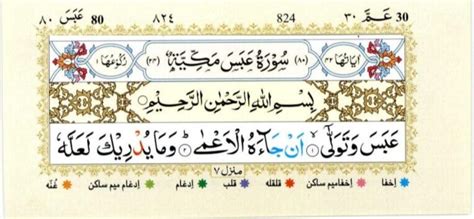 عَبَسَ ٨٠ 80 ٨٢٤ 824 عَمَّ ٣٠ 30
اٰيَاتُهَا ٤٢ (٨٠) سُوْرَةُ عَبَسَ مَكِّيَّةٌ (٢٤) رُكُوْعُهَا ١
بِسْمِ اللّٰهِ الرَّحْمٰنِ الرَّحِيْمِ
عَبَسَ وَتَوَلّٰىٓ ۙ﴿۱﴾ اَنْ جَآءَهُ الْاَعْمٰى ؕ﴿۲﴾ وَمَا يُدْرِيْكَ لَعَلَّهٗ
منزل ٧
اخفا اخفا ميم ساكن قلقله قلب ادغام ادغام ميم ساكن غنّه